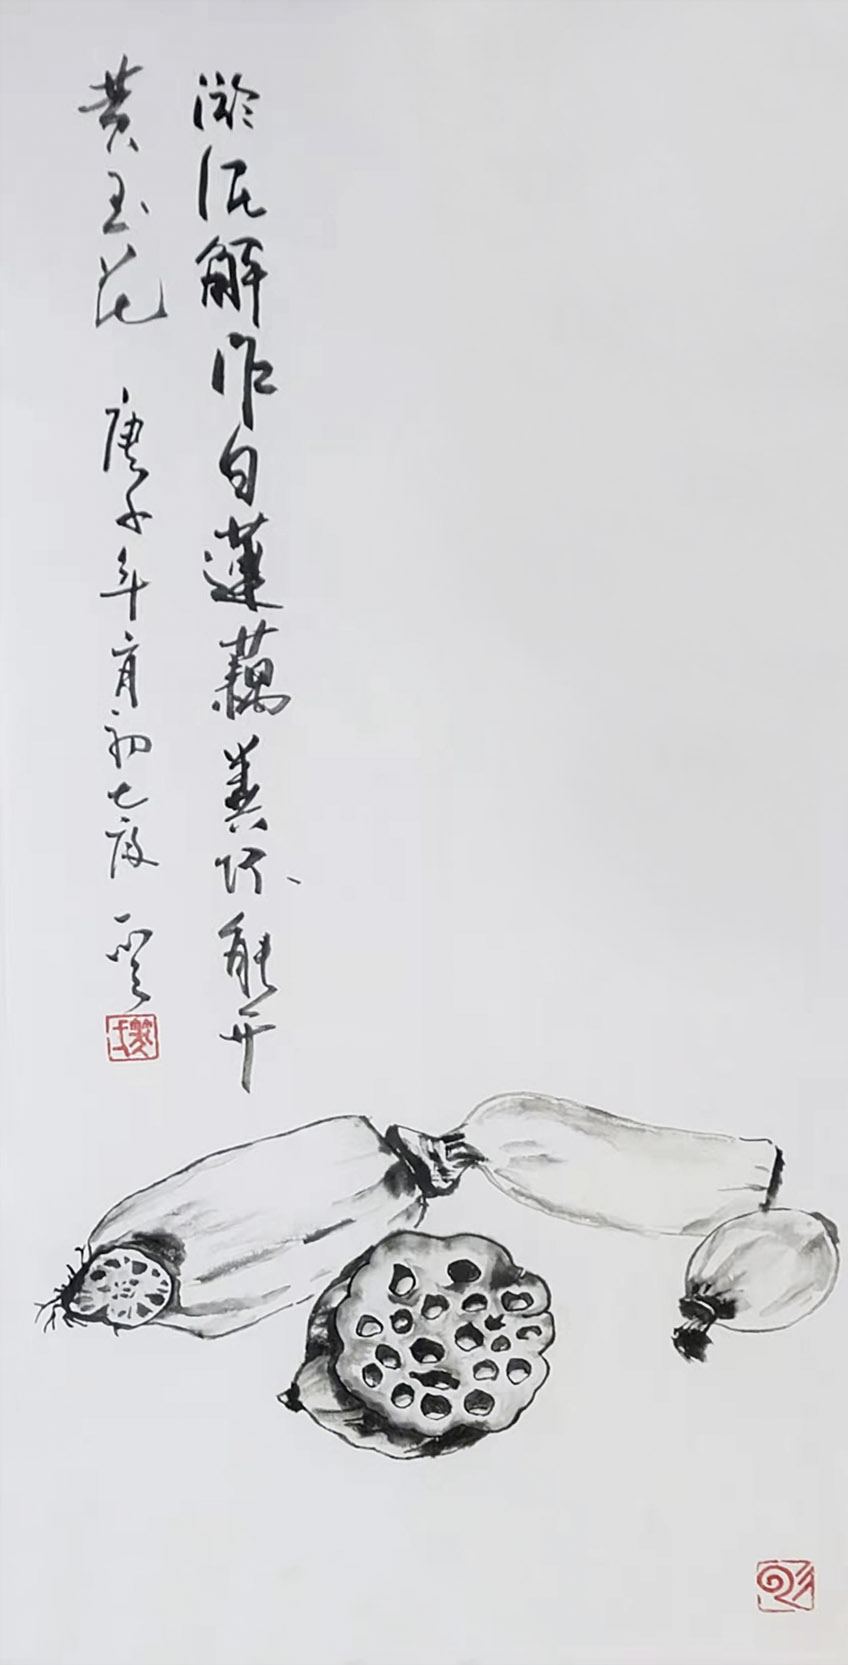 淤泥解作白蓮藕粪坏能开
黄玉花 庚子年六月初七夜